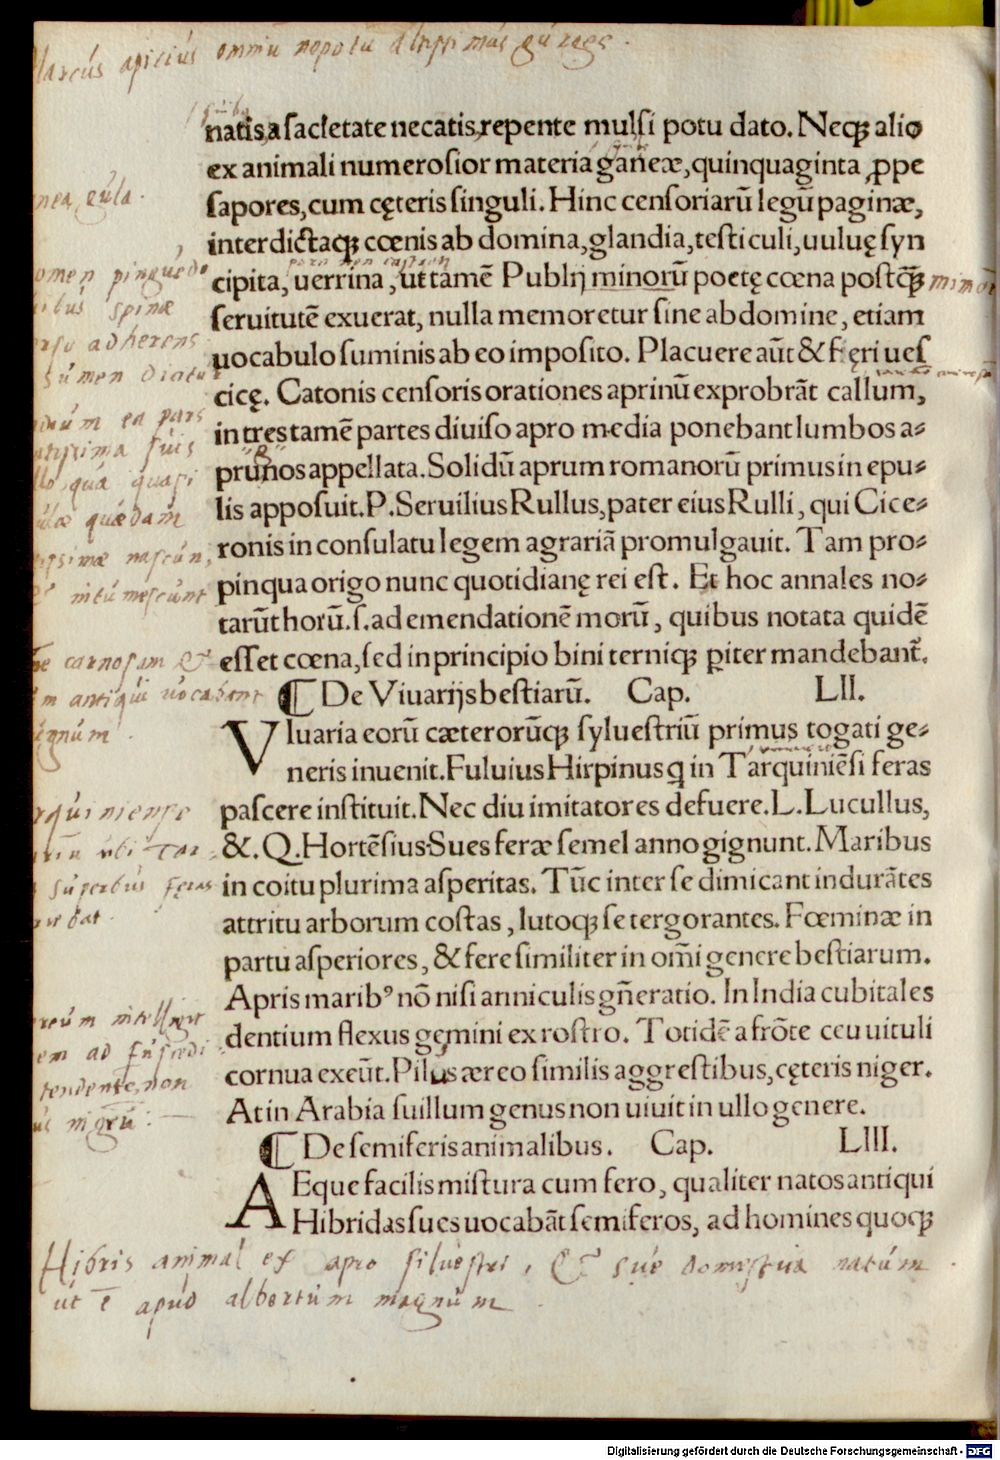 Marcus apicius omniu nepotu altissimus gurges.
natis, a sacietate necatis, repente mulsi potu dato. Neqꝫ alio
ex animali numerosior materia ganeæ, quinquaginta ꝓpe
sapores, cum cęteris singuli. Hinc censoriarũ legũ paginæ,
interdictaqꝫ cœnis ab domina, glandia, testiculi, uuluę syn
cipita, uerrina, ut tamẽ Publij minorũ poetę cœna postq̃ꝫ
seruitutẽ exuerat, nulla memoretur sine abdomine, etiam
uocabulo suminis ab eo imposito. Placuere aũt & fęri ues
cicę. Catonis censoris orationes aprinũ exprobrãt callum,
in tres tamẽ partes diuiso apro media ponebant lumbos a⸗
prunos appellata. Solidũ aprum romanorũ primus in epu⸗
lis apposuit. P. Seruilius Rullus, pater eius Rulli, qui Cice⸗
ronis in consulatu legem agrariã promulgauit. Tam pro⸗
pinqua origo nunc quotidianę rei est. Et hoc annales no⸗
tarũt horũ. s. ad emendationẽ morũ, quibus notata quidẽ
esset cœna, sed in principio bini terniqꝫ ꝑiter mandebant̃.
¶ De Viuarijs bestiarũ. Cap. LII.
VIuaria eorũ cæterorũqꝫ syluestriũ primus togati ge⸗
neris inuenit. Fuluius Hirpinus q in Tarquiniẽsi feras
pascere instituit. Nec diu imitatores defuere. L. Lucullus,
&. Q. Hortẽsius. Sues feræ semel anno gignunt. Maribus
in coitu plurima asperitas. Tũc inter se dimicant indurãtes
attritu arborum costas, lutoqꝫ se tergorantes. Fœminæ in
partu asperiores, & fere similiter in om̃i genere bestiarum.
Apris maribꝰ nõ nisi anniculis gñeratio. In India cubitales
dentium flexus gemini ex rostro. Totidẽ a frõte ceu uituli
cornua exeũt. Pilus æreo similis aggrestibus, cęteris niger.
At in Arabia suillum genus non uiuit in ullo genere.
¶ De semiferis animalibus. Cap. LIII.
AEque facilis mistura cum fero, qualiter natos antiqui
Hibridas sues uocabãt semiferos, ad homines quoqꝫ
gula.
pingued
spinæ
adherens
sumen dictu
ea pars
suis
quasi
quædam
nascun
intumescunt
carnosam &
antiqui uocabant
ubi Tar
superbus feras
intelligit
em ad
tendente, non
nigru:
Hibris animal ex apro siluestri, & sue domestica natum
ut ē apud albertum magnum
Digitalisierung gefördert durch die Deutsche Forschungsgemeinschaft - DFG